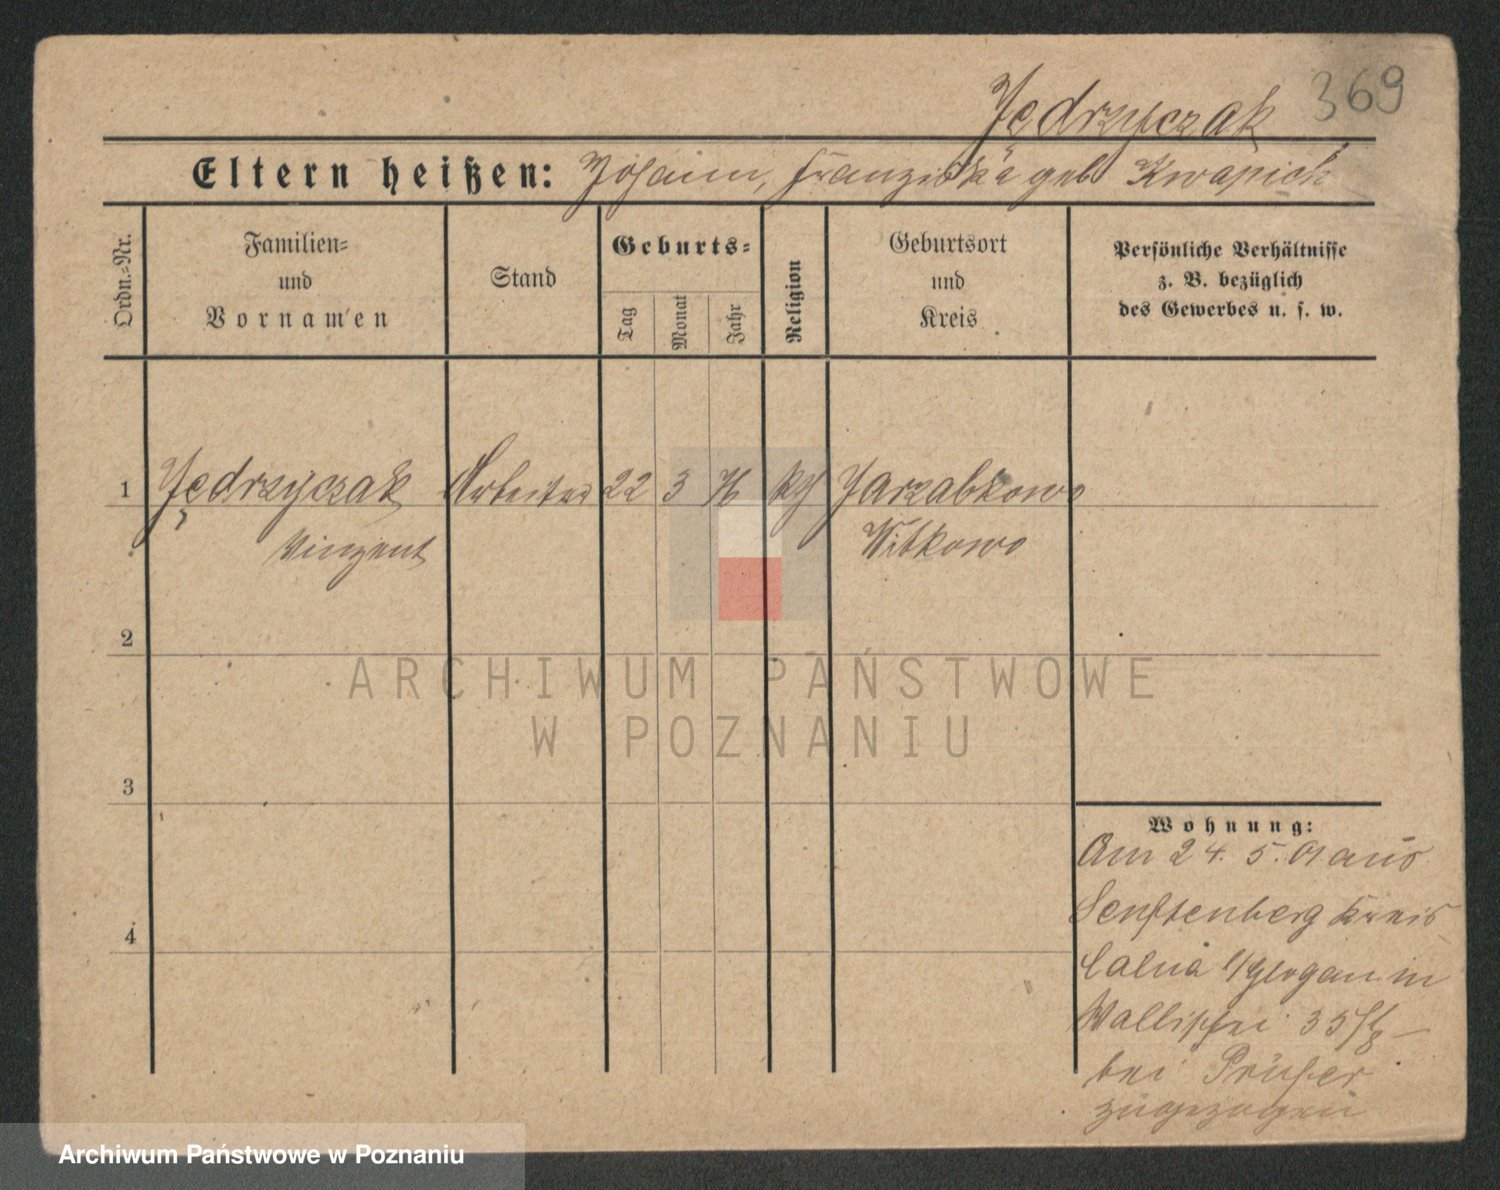 Jędrzyczak 369
Eltern heißen: Johann, Franziska geb Kwapich
Ordn.=Nr.
Familien=
und
Vornamen
Stand
Geburts=
Tag
Monat
Jahr
Religion
Geburtsort
und
Kreis
Persönliche Verhältnisse
z. B. bezüglich
des Gewerbes u. s. w.
1 Jędrzyczak Arbeiter 22 3 76 kth Jarzabkowo
Vinzent Witkowo
2
3
4
Wohnung:
Am 24. 5. 01 aus
Senftenberg Kreis
Calua in
Wallischei 35/
bei Prüfer
zugezogen
ARCHIWUM PAŃSTWOWE
W POZNANIU
Archiwum Państwowe w Poznaniu